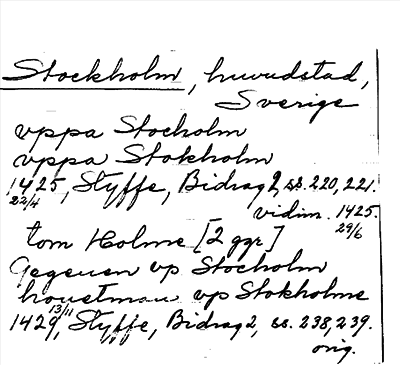 Stockholm, huvudstad,
Sverige
vppa Stocholm
vppa Stokholm
1425, Styffe, Bidrag 2, ss. 220, 221.
22/4
vidim. 1425.
29/6
tom Holme [2 ggr]
Gegeuen vp Stocholm
houetman vp Stokholme
13/11
1429, Styffe, Bidrag 2, ss. 238, 239.
orig.